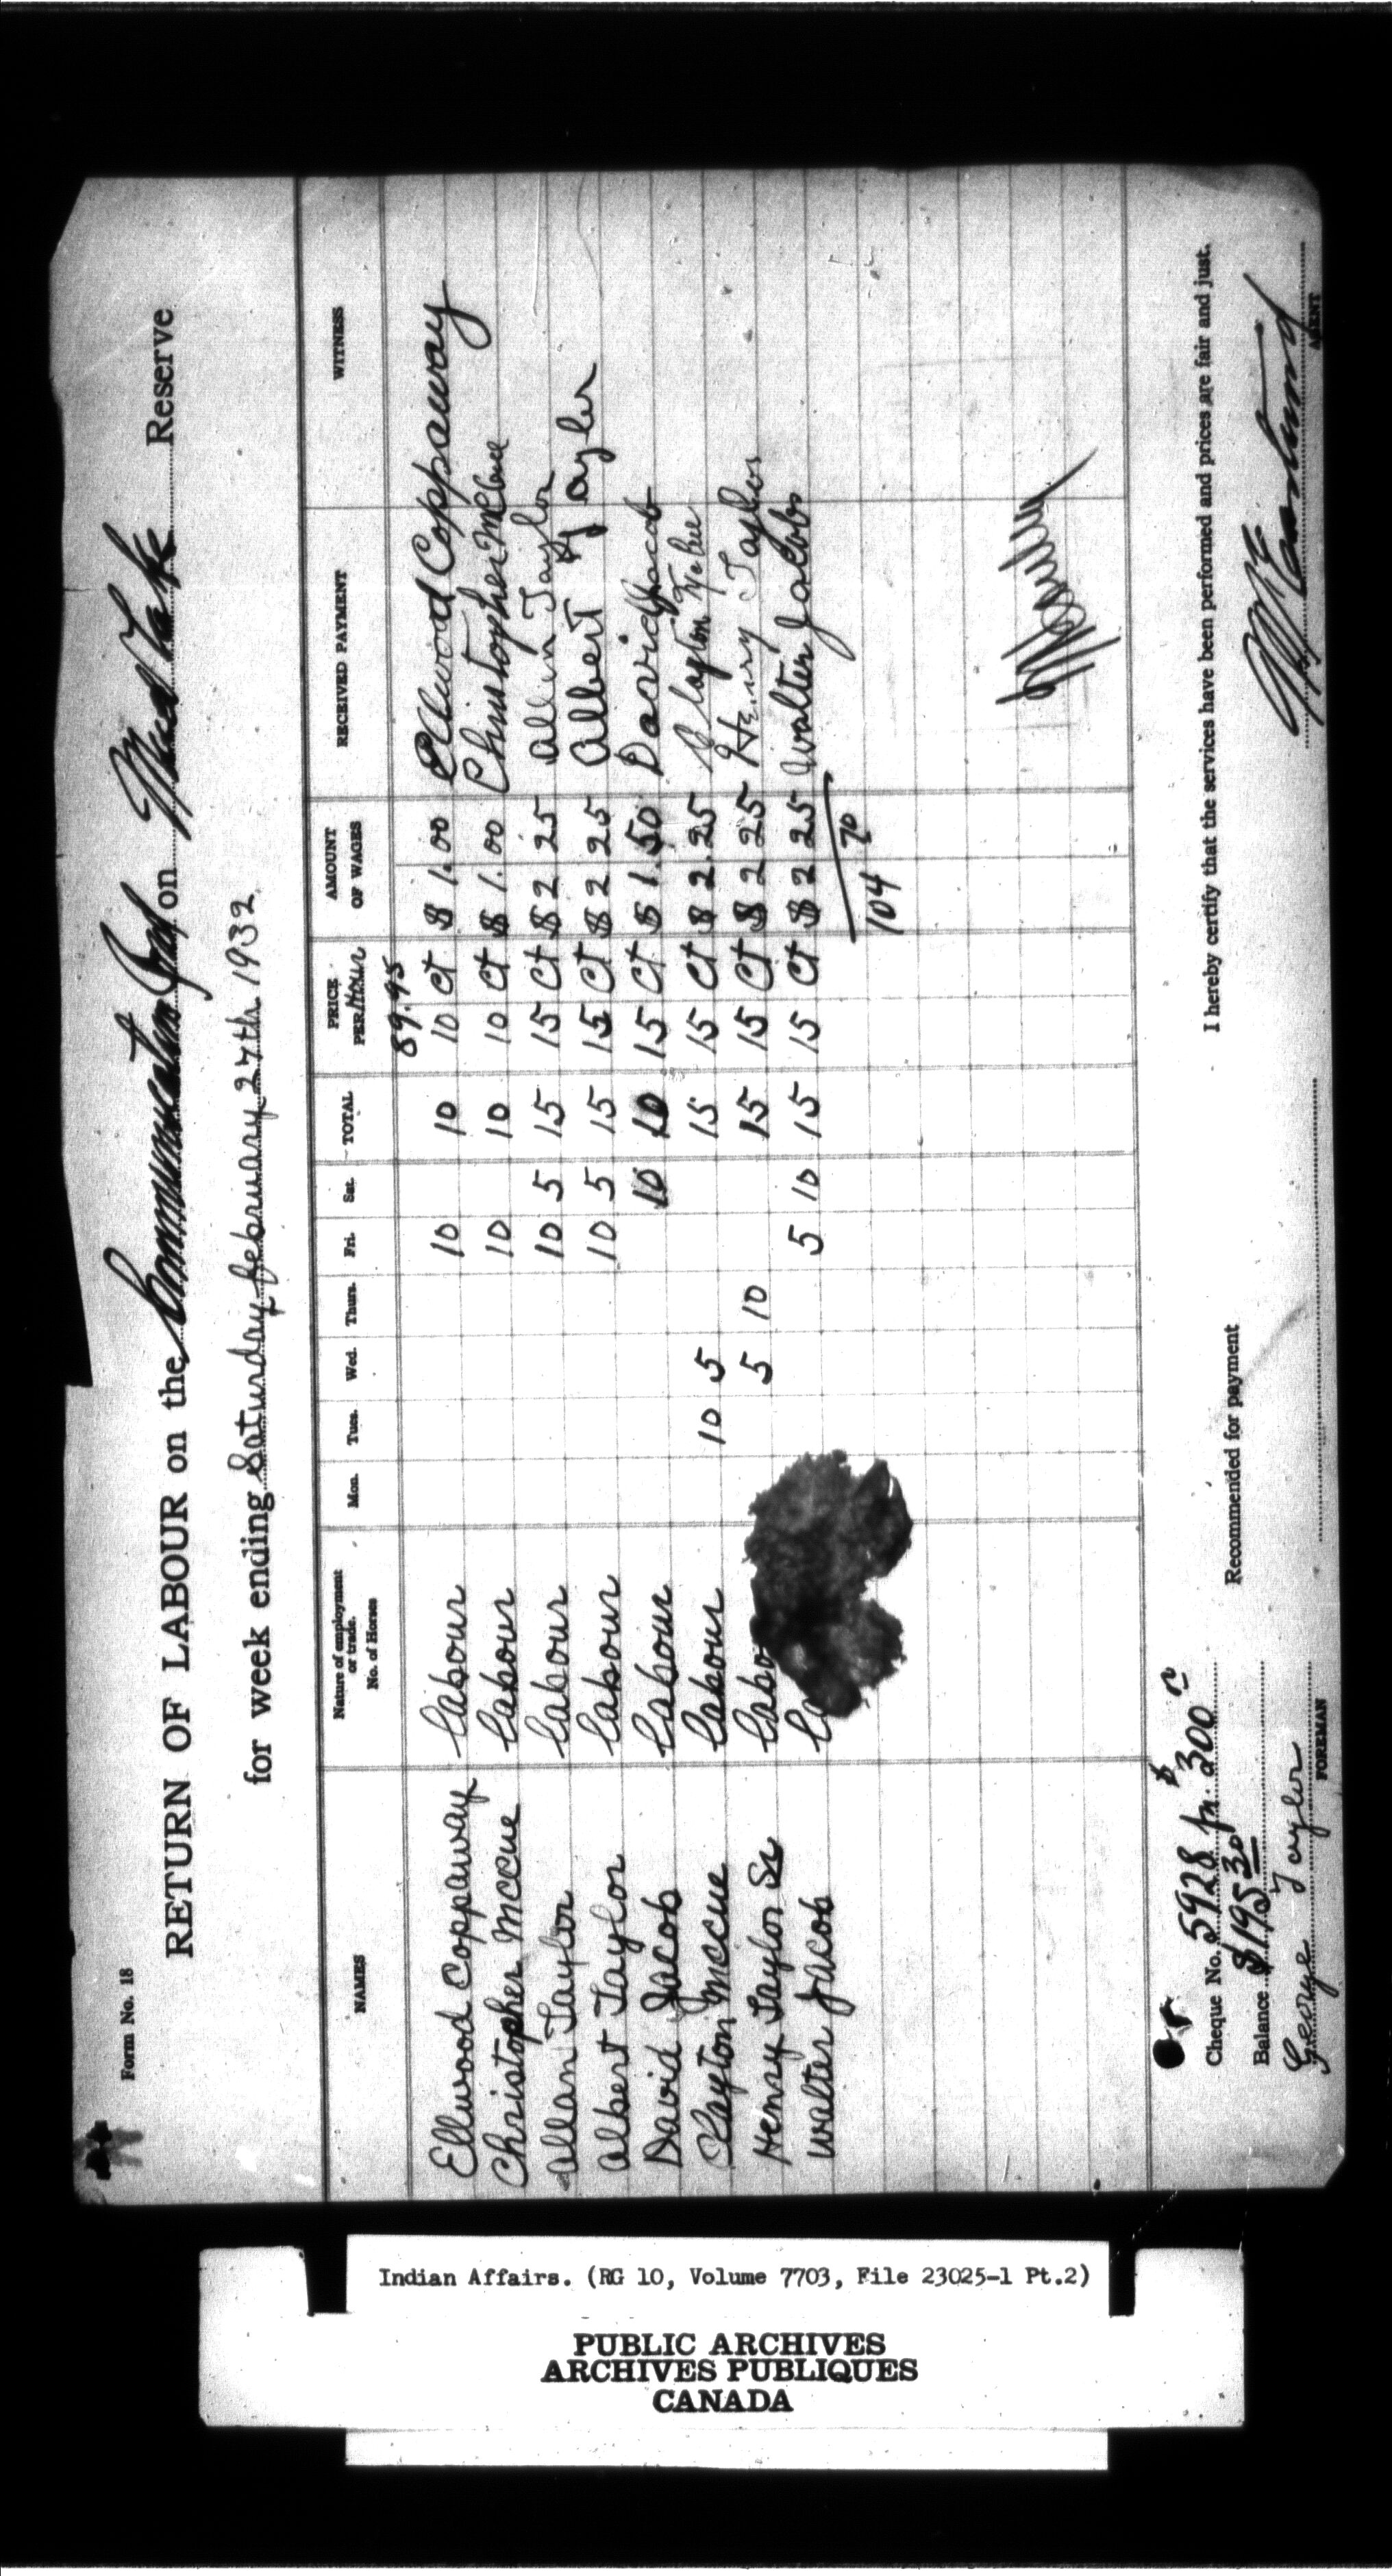 Form No. 18
RETURN OF LABOUR on the Communication Road on Mud Lake Reserve
for week ending Saturday February 27th 1932
NAMES Nature of employment or trade. No. of Horses Mon. Tues. Wed. Thurs. Fri. Sat. TOTAL PRICE PER Hour AMOUNT OF WAGES RECEIVED PAYMENT WITNESS
89.95
Ellwood Coppaway Labour 10 10 10 Ct $ 1.00 Ellwood Coppaway
Christopher McCue Labour 10 10 10 Ct $ 1.00 Christopher McCue
Allan Taylor Labour 10 5 15 15 Ct $ 2 25 Allen Taylor
Albert Taylor Labour 10 5 15 15 Ct $ 2 25 Albert Taylor
David Jacob Labour 10 10 15 Ct $ 1.50 David Jacob
Clayton McCue Labour 10 5 15 15 Ct $ 2.25 Clayton McCue
Henry Taylor Sr Labo 5 10 15 15 Ct $ 2 25 Henry Taylor
Walter Jacob La 5 10 15 15 Ct $ 2 25 Walter Jacobs
104 70
I hereby certify that the services have been performed and prices are fair and just.
Cheque No. 5928 for $300
Recommended for payment
Balance $195 30
George Taylor
FOREMAN
AGENT
Indian Affairs. (RG 10, Volume 7703, File 23025-1 Pt.2)
PUBLIC ARCHIVES
ARCHIVES PUBLIQUES
CANADA